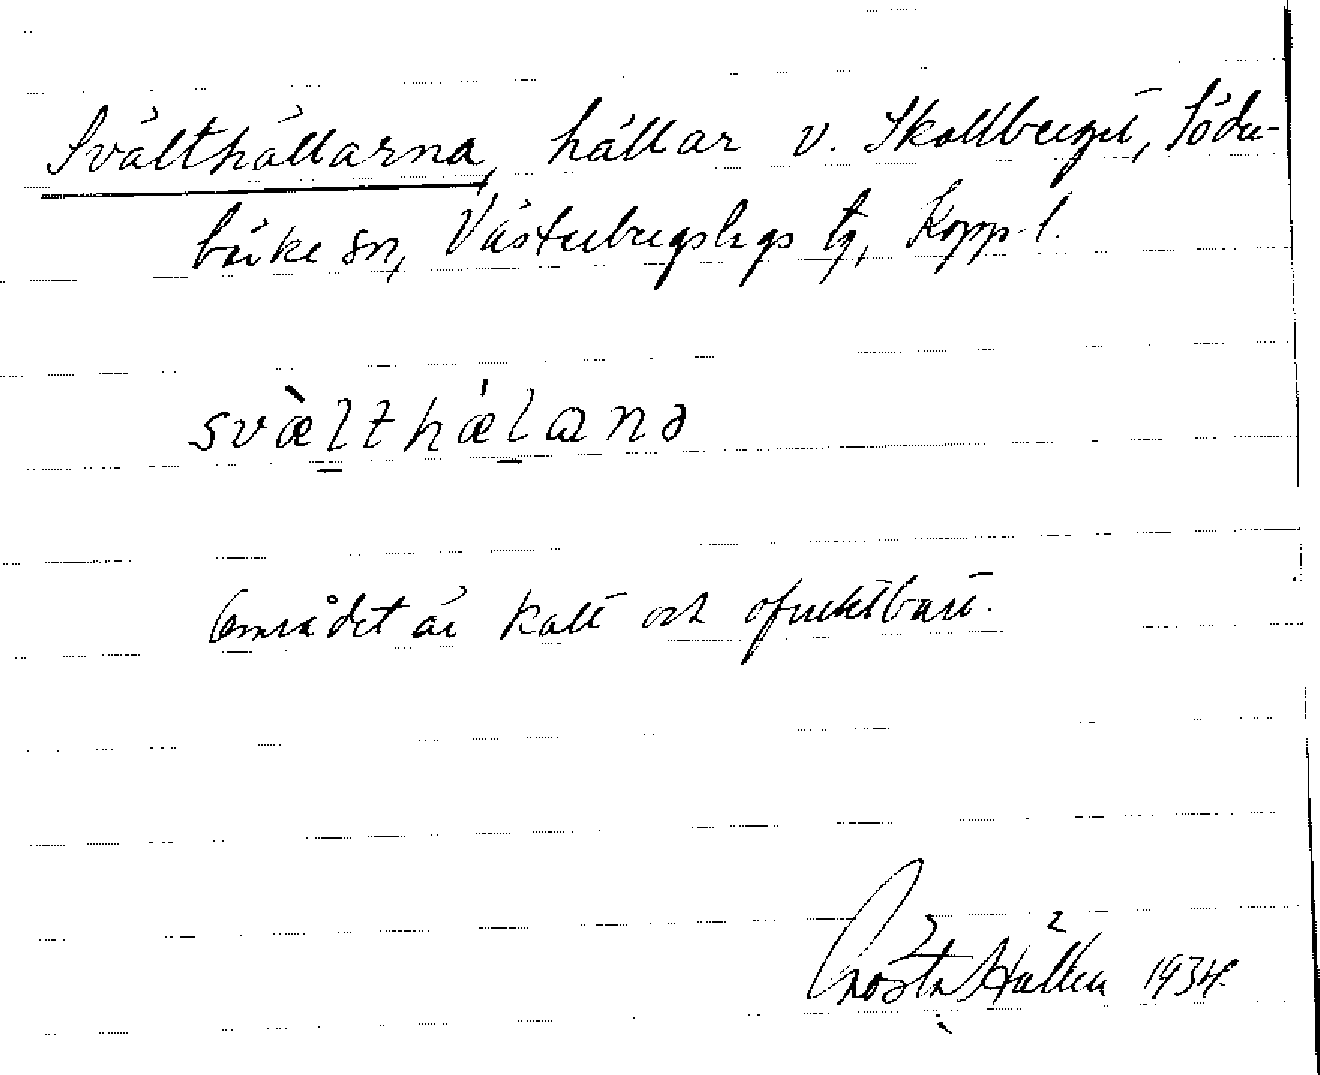 Svälthällarna, hällar v. Skallberget, Söder-
bärke sn, Västerbergslags tg, Kopp. l.
svæ̀l̲thæ̍l̲aɳə
Området är kalt och ofruktbart.
Gösta Hallen 1934.